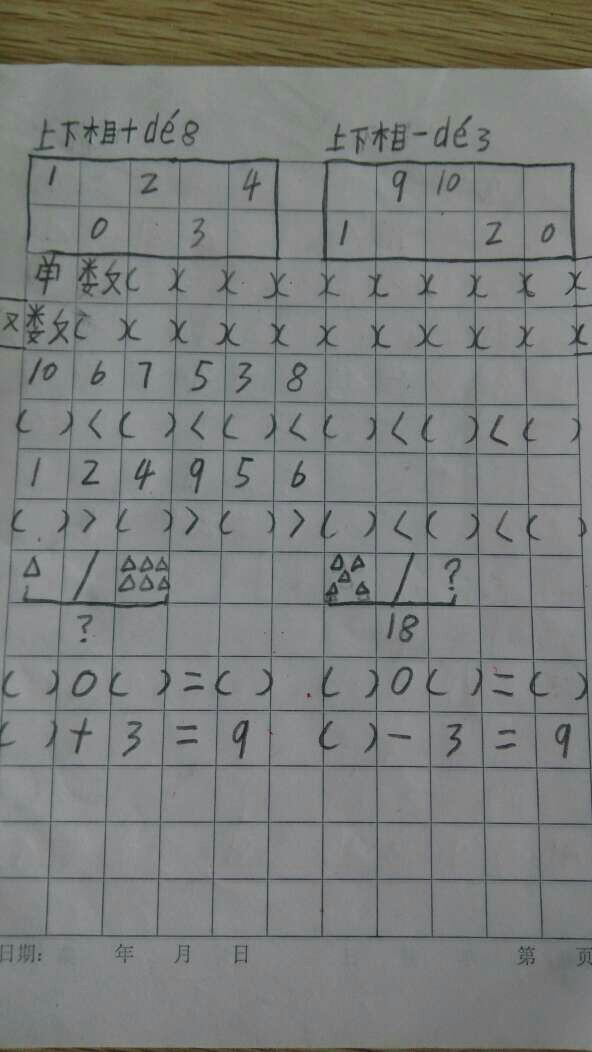 上下相+dé8
上下相-dé3
1 2 4
0 3
9 10
1 2 0
单数( x x x x x x x x x
双数( x x x x x x x x x x
10 6 7 5 3 8
( )<( )<( )<( )<( )<( )
1 2 4 9 5 6
( )>( )>( )>( )<( )<( )
△ / △△△△△△
?
△△△△△ / ?
18
( )O( )=( ) ( )O( )=( )
( )+3=9 ( )-3=9
日期: 年 月 日 第 页